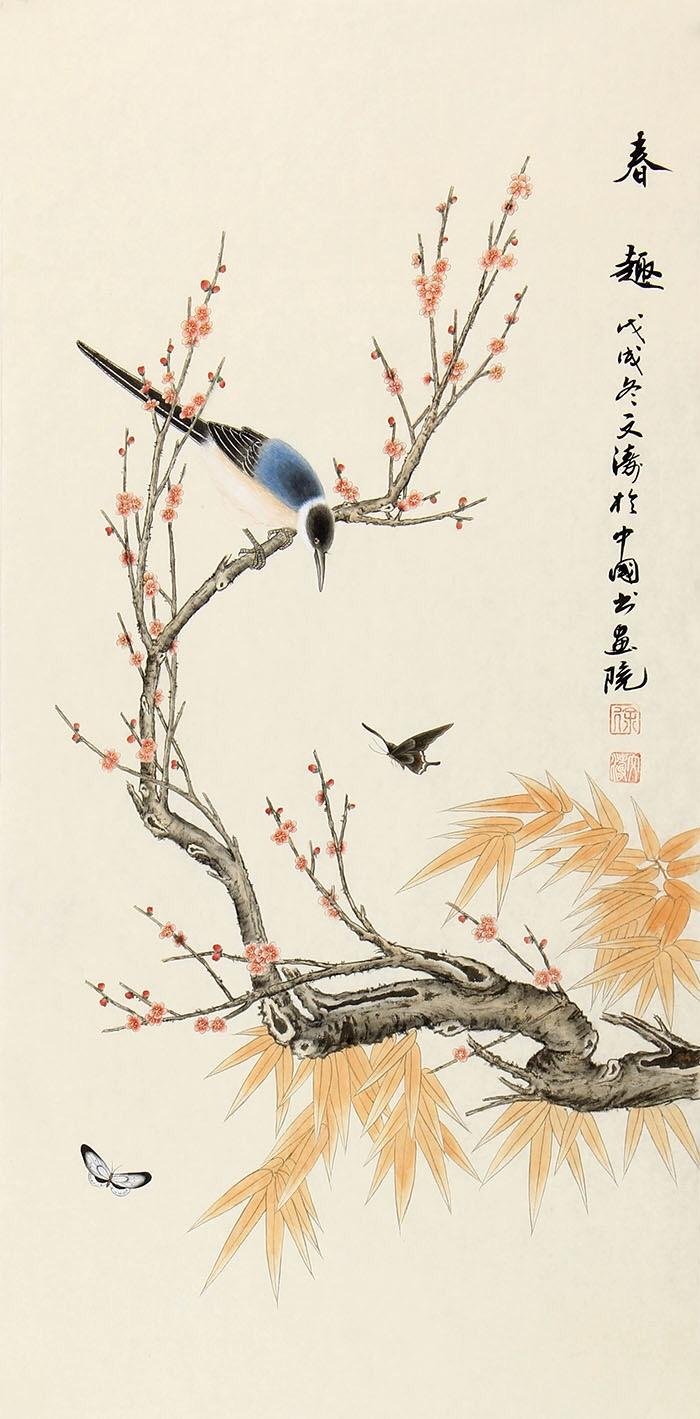 春趣
戊戌冬文涛於中國书画院